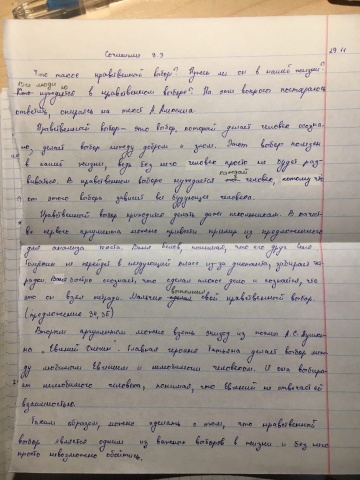 Сочинение 9.3
29.11
Что такое нравственный выбор? Нужен ли он в нашей жизни?
Все люди
нуждаются в нравственном выборе? На эти вопросы постараюсь
ответить, опираясь на текст А. Лиханова.
Нравственный выбор - это выбор, который делает человек осозна-
но, делает выбор между добром и злом. Этот выбор полезен
в нашей жизни, ведь без него человек просто не будет раз-
виваться. В нравственном выборе нуждается каждый человек, потому что
от этого выбора зависит все будущее человека.
Нравственный выбор приходится делать даже школьникам. В качест-
ве первого аргумента можно привести пример из предложенного
для анализа текста. Ваня Белов, понимая, что его друг Ваня
не перейдёт в следующий класс из-за диктанта, забирает те-
тради. Ваня осознаёт, что сделал плохое дело и сознаётся, что
это он взял тетради. Мальчик выполнил свой нравственный выбор.
(предложение 34, 35)
Вторым аргументом можно взять эпизод из поэмы А.С Пушки-
на "Евгений Онегин". Главная героиня Татьяна делает выбор меж-
ду любимым Евгением и нелюбимым человеком. И она выбира-
ет нелюбимого человека, понимая, что Евгений не отвечает ей
взаимностью.
Таким образом, можно сделать о том, что нравственный
выбор является одним из важных выборов в жизни и без него
просто невозможно обойтись.